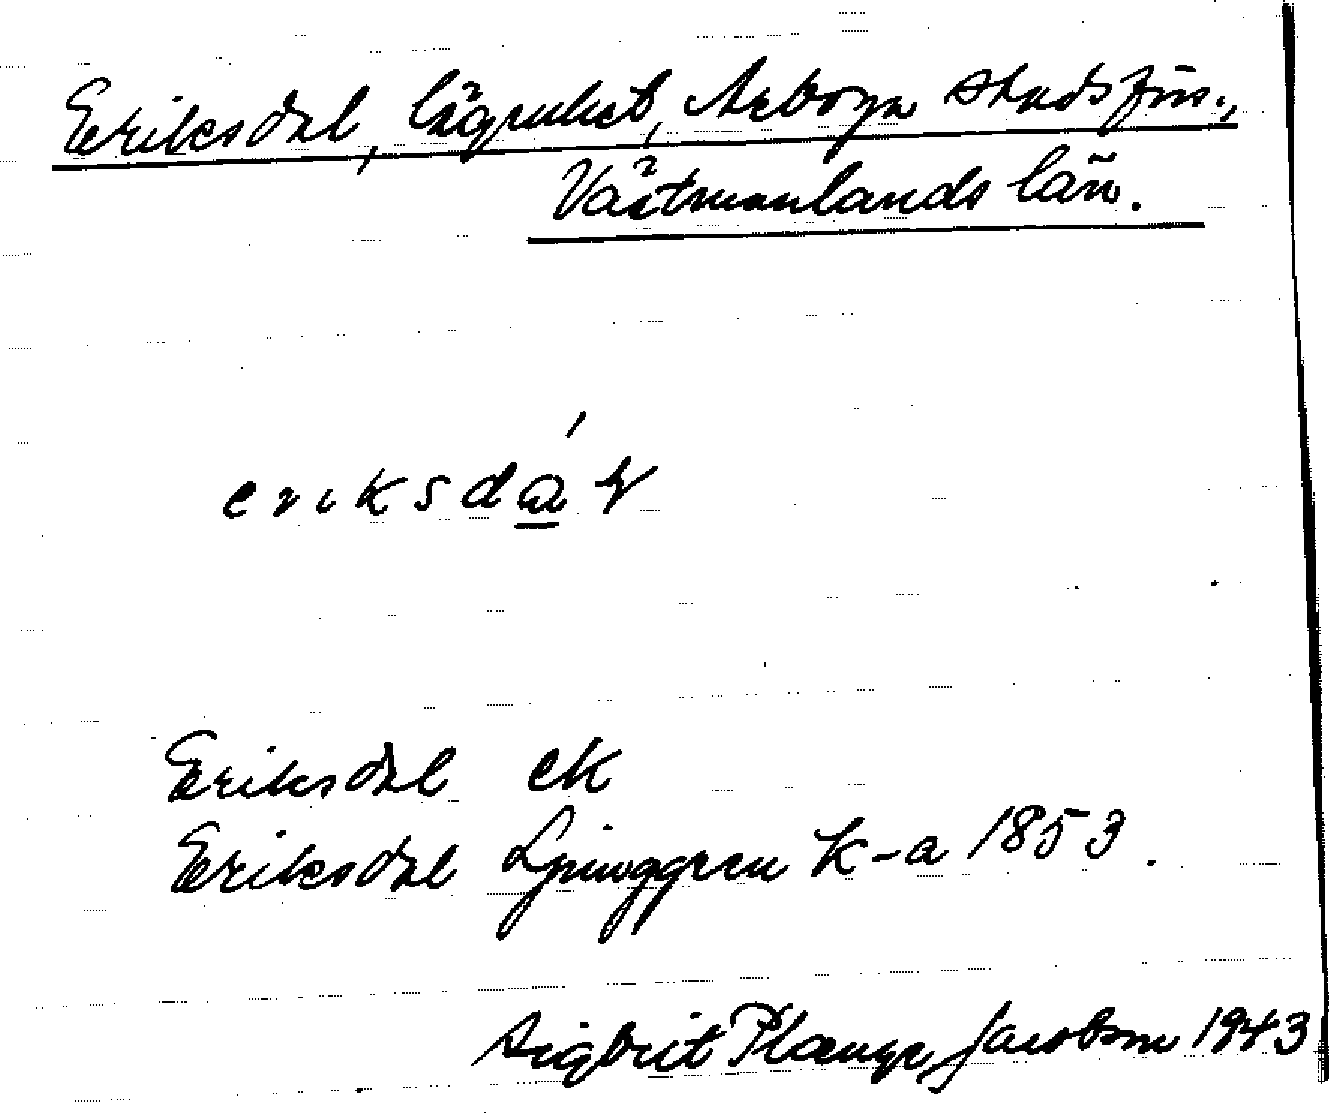 Eriksdal, lägenhet, Arboga stadsförs.,
Västmanlands län.
eriksdá̲ɫ
Eriksdal ek
Eriksdal Ljunggren K-a 1853.
Sigbrit Plænge Jacobson 1943